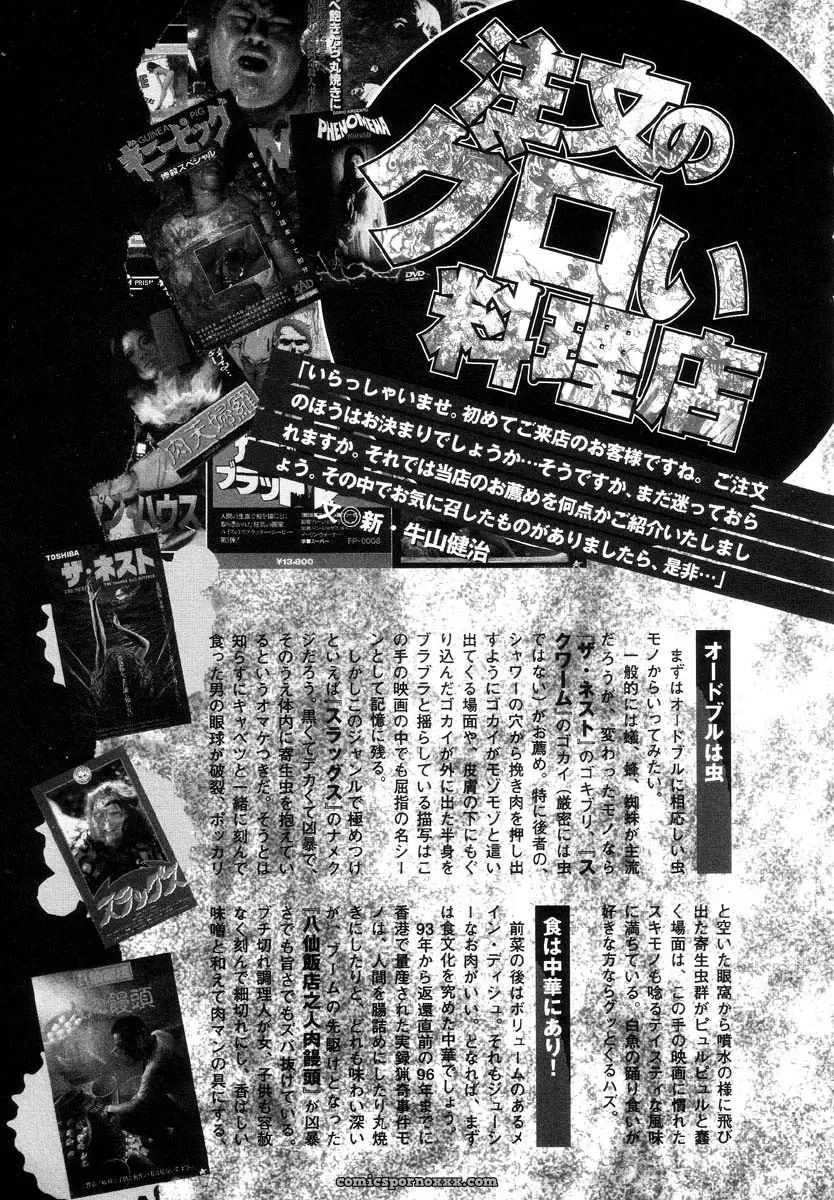 注文の
グロい
料理店
「いらっしゃいませ。初めてご来店のお客様ですね。ご注文
のほうはお決まりでしょうか…そうですか、まだ迷っておら
れますか。それでは当店のお薦めを何点かご紹介いたしまし
ょう。その中でお気に召したものがありましたら、是非…」
文◎新・牛山健治
オードブルは虫
まずはオードブルに相応しい虫
モノからいってみたい。
一般的には蟻、蜂、蜘蛛が主流
だろうが、変わったモノなら
『ザ・ネスト』のゴキブリ、『ス
クワーム』のゴカイ（厳密には虫
ではない）がお薦め。特に後者の、
シャワーの穴から挽き肉を押し出
すようにゴカイがモゾモゾと這い
出てくる場面や、皮膚の下にもぐ
り込んだゴカイが外に出た半身を
ブラブラと揺らしている描写はこ
の手の映画の中でも屈指の名シー
ンとして記憶に残る。
しかしこのジャンルで極めつけ
といえば『スラッグス』のナメク
ジだろう。黒くてデカくて凶暴で、
そのうえ体内に寄生虫を抱えてい
るというオマケつきだ。そうとは
知らずにキャベツと一緒に刻んで
食った男の眼球が破裂、ポッカリ
と空いた眼窩から噴水の様に飛び
出た寄生虫群がピュルピュルと蠢
く場面は、この手の映画に慣れた
スキモノも唸るテイスティな風味
に満ちている。白魚の踊り食いが
好きな方ならグッとくるハズ。
食は中華にあり！
前菜の後はボリュームのあるメ
イン・ディシュ。それもジューシ
ーなお肉がいい。となれば、まず
は食文化を究めた中華でしょう。
93年から返還直前の96年までに
香港で量産された実録猟奇事件モ
ノは、人間を腸詰めにしたり丸焼
きにしたりと、どれも味わい深い
が、ブームの先駆けとなった
『八仙飯店之人肉饅頭』が凶暴
さでも旨さでもズバ抜けている。
ブチ切れ調理人が女、子供も容赦
なく刻んで細切れにし、香ばしい
味噌と和えて肉マンの具にする
べ飽きたら、丸焼きに
GUINEA PIG
ギニーピッグ
惨殺スペシャル
DARIO ARGENTO
PHENOMENA
DVD
PRISM
MAD
肉天婦羅
ハウス
ブラッド
FP-0008
¥13,800
TOSHIBA
ザ・ネスト
スラッグス
饅頭
comicspornoxxx.com